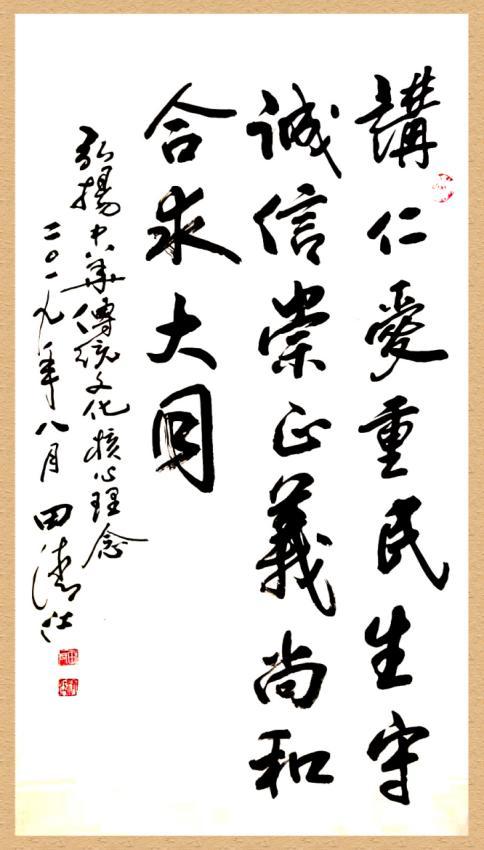 講仁愛重民生守
誠信崇正義尚和
合求大同
弘揚中華傳統文化核心理念
二〇一九年八月 田